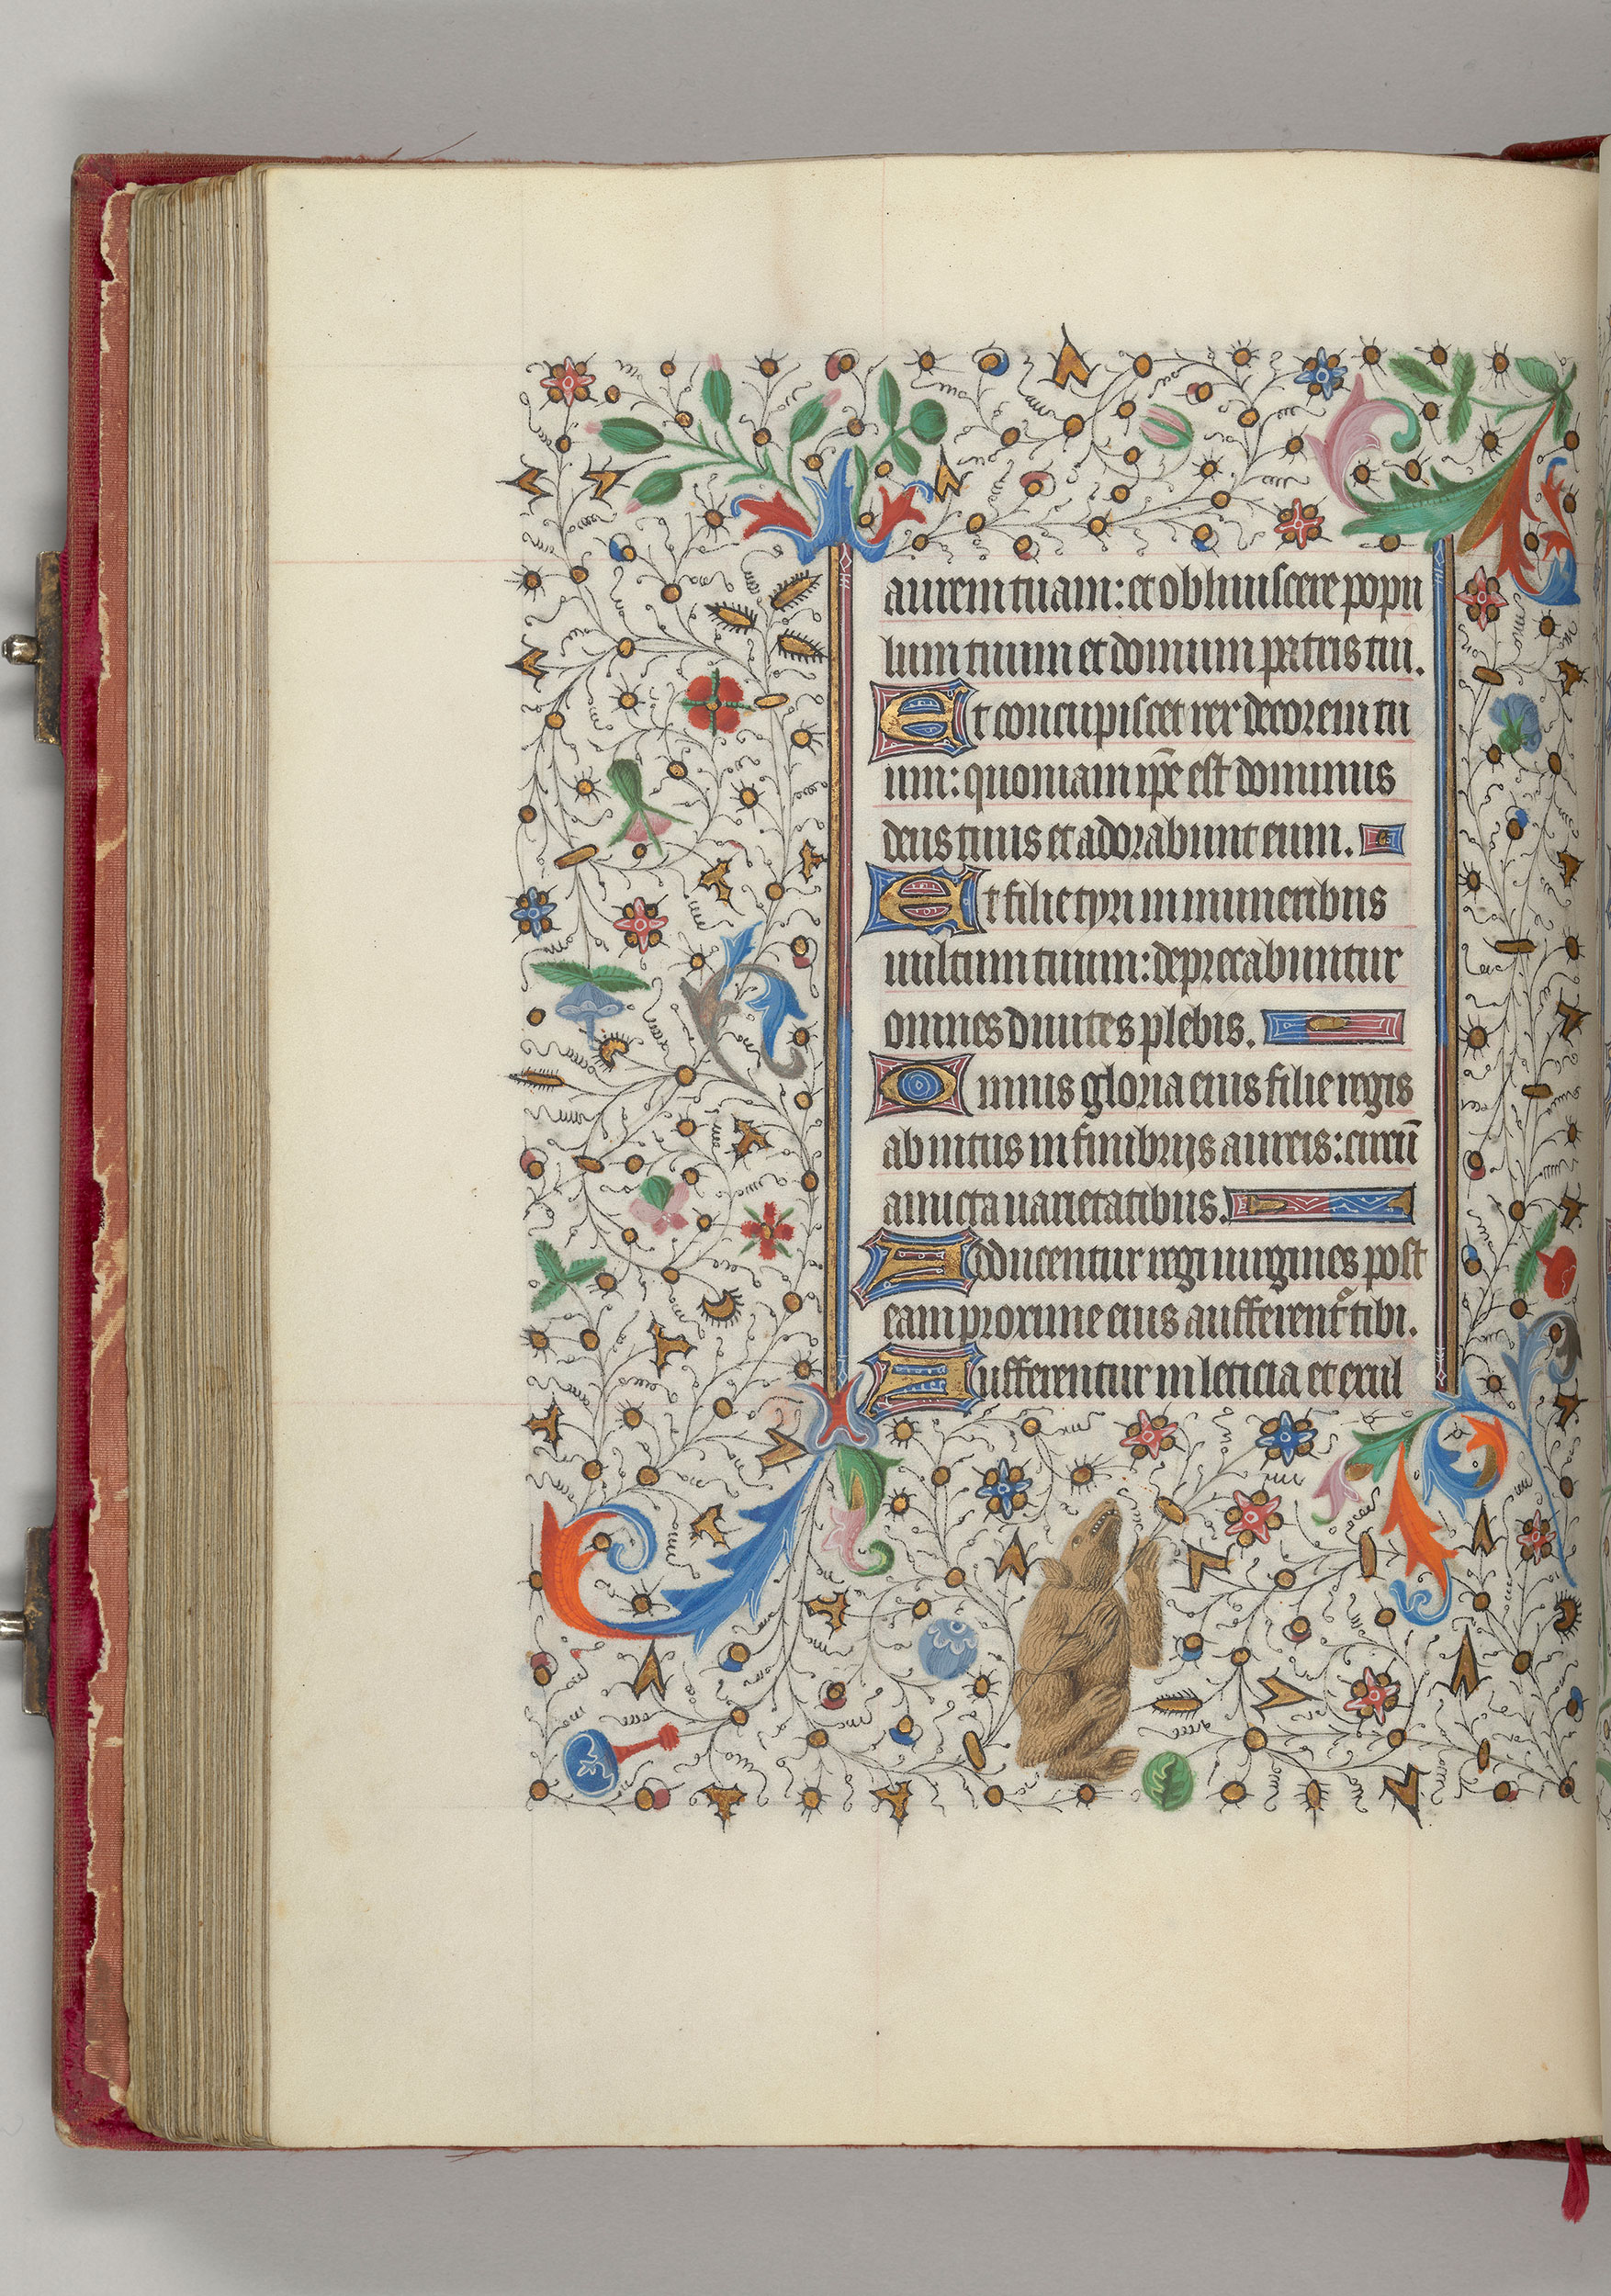 aurem tuam: et obliuiscere popu
lum tuum et domum patris tui.
Et concupiscet rex decorem tu
um: quoniam ip̄e est dominus
deus tuus et adorabunt eum.
Et filie tyri in muneribus
uultum tuum: deprecabuntur
omnes diuites plebis.
Omnis gloria eius filie regis
ab intus in fimbrijs aureis: circū
amicta uarietatibus.
Adducentur regi uirgines post
eam proxime eius aufferent᷑ tibi.
Aufferentur in leticia et exul